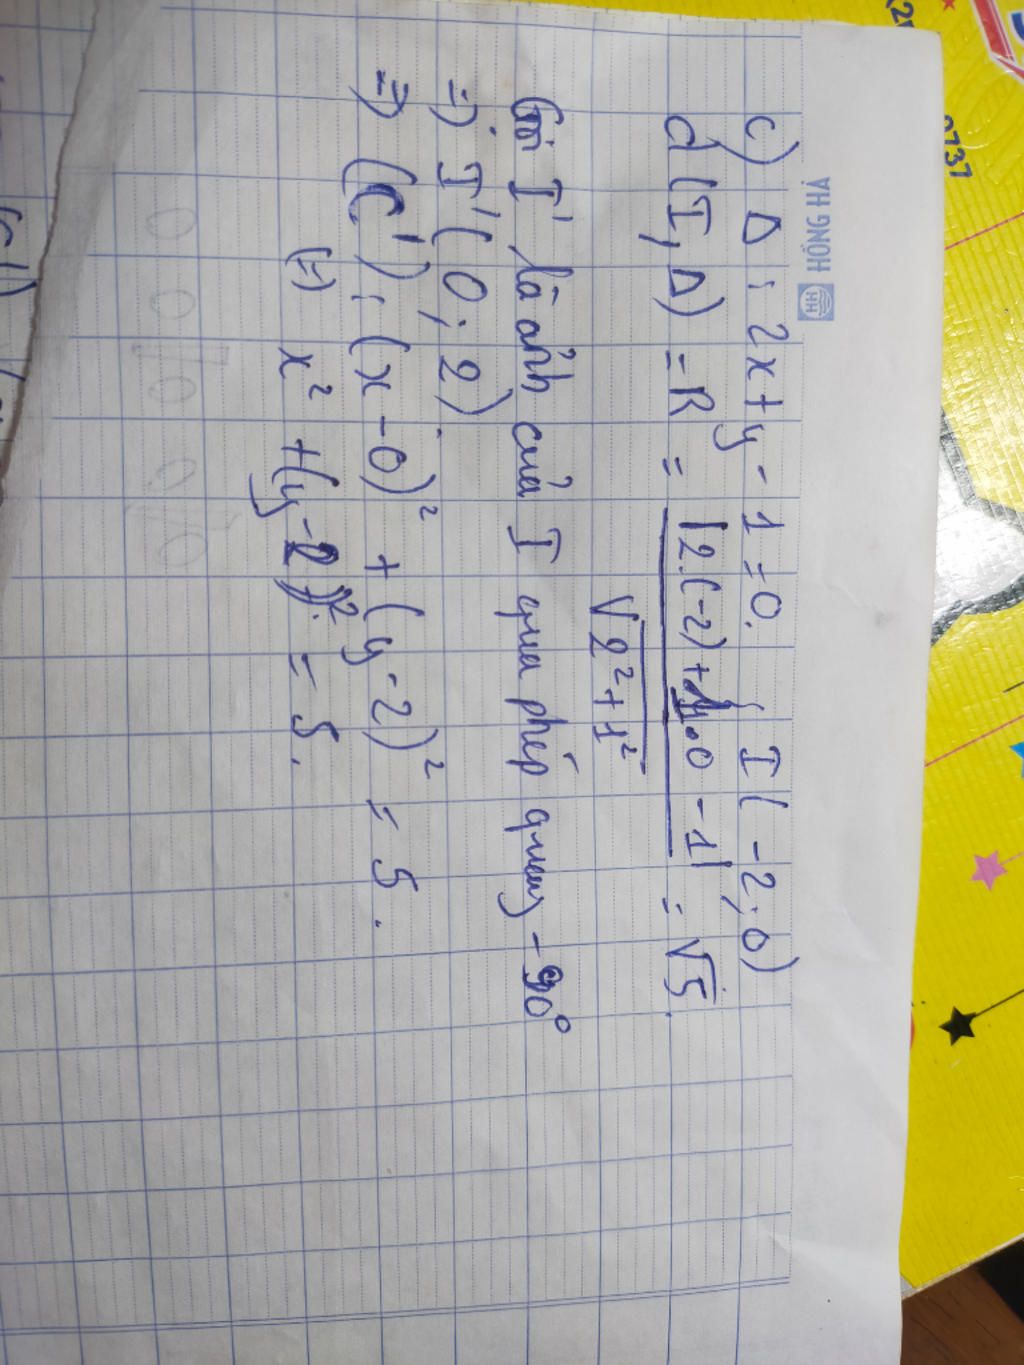 HỒNG HÀ
HH
c) Δ : 2x + y - 1 = 0. ( I ( -2; 0)
d (I, Δ) = R = |2.(-2) + 1.0 - 1| / √2² + 1² = √5.
Gọi I' là ảnh của I qua phép quay - 90°
=) I' ( 0; 2).
=) (C') : (x - 0)² + (y - 2)² = 5.
(=) x² + (y - 2)² = 5.
0737